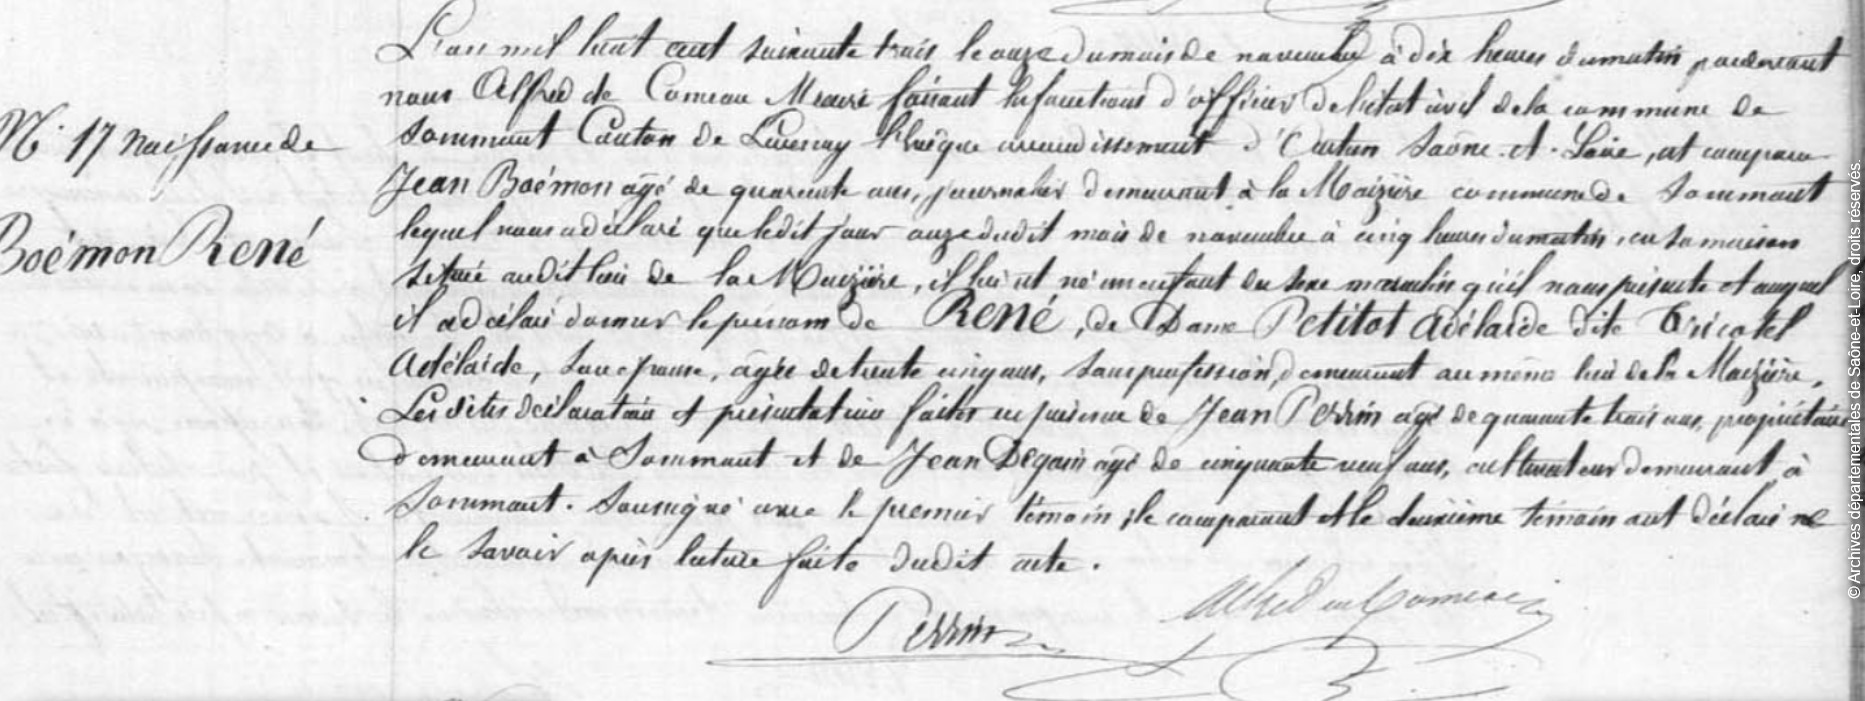 L'an mil huit cent soixante trois le onze du mois de novembre à dix heures du matin pardevant
nous Alfred de Comeau Maire faisant les fonctions d'officier de l'état civil de la commune de
N° 17 Naissance de
Sommant Canton de Lucenay l'Evêque arrondissement d'Autun Saône-et-Loire, est comparu
Jean Boémon agé de quarante ans, journalier demeurant à la Maizière commune de Sommant
Boémon René
lequel nous a déclaré que ledit jour onze dudit mois de novembre à cinq heures du matin, en sa maison
située audit lieu de la Maizière, il lui est né un enfant du sexe masculin qu'il nous présente et auquel
il a déclaré donner le prénom de René, de Dame Petitot Adélaïde dite Tricotel
Adélaïde, son épouse, agée de trente cinq ans, sans profession, demeurant au même lieu de la Maizière.
Les dites déclaration et présentation faites en présence de Jean Perrin agé de quarante trois ans, propriétaire
demeurant à Sommant et de Jean Degoin agé de cinquante neuf ans, cultivateur demeurant à
Sommant. Soussigné avec le premier témoin; le comparant et le deuxième témoin ont déclaré ne
le savoir après lecture faite dudit acte.
Perrin
Alfred de Comeau
© Archives départementales de Saône-et-Loire, droits réservés.